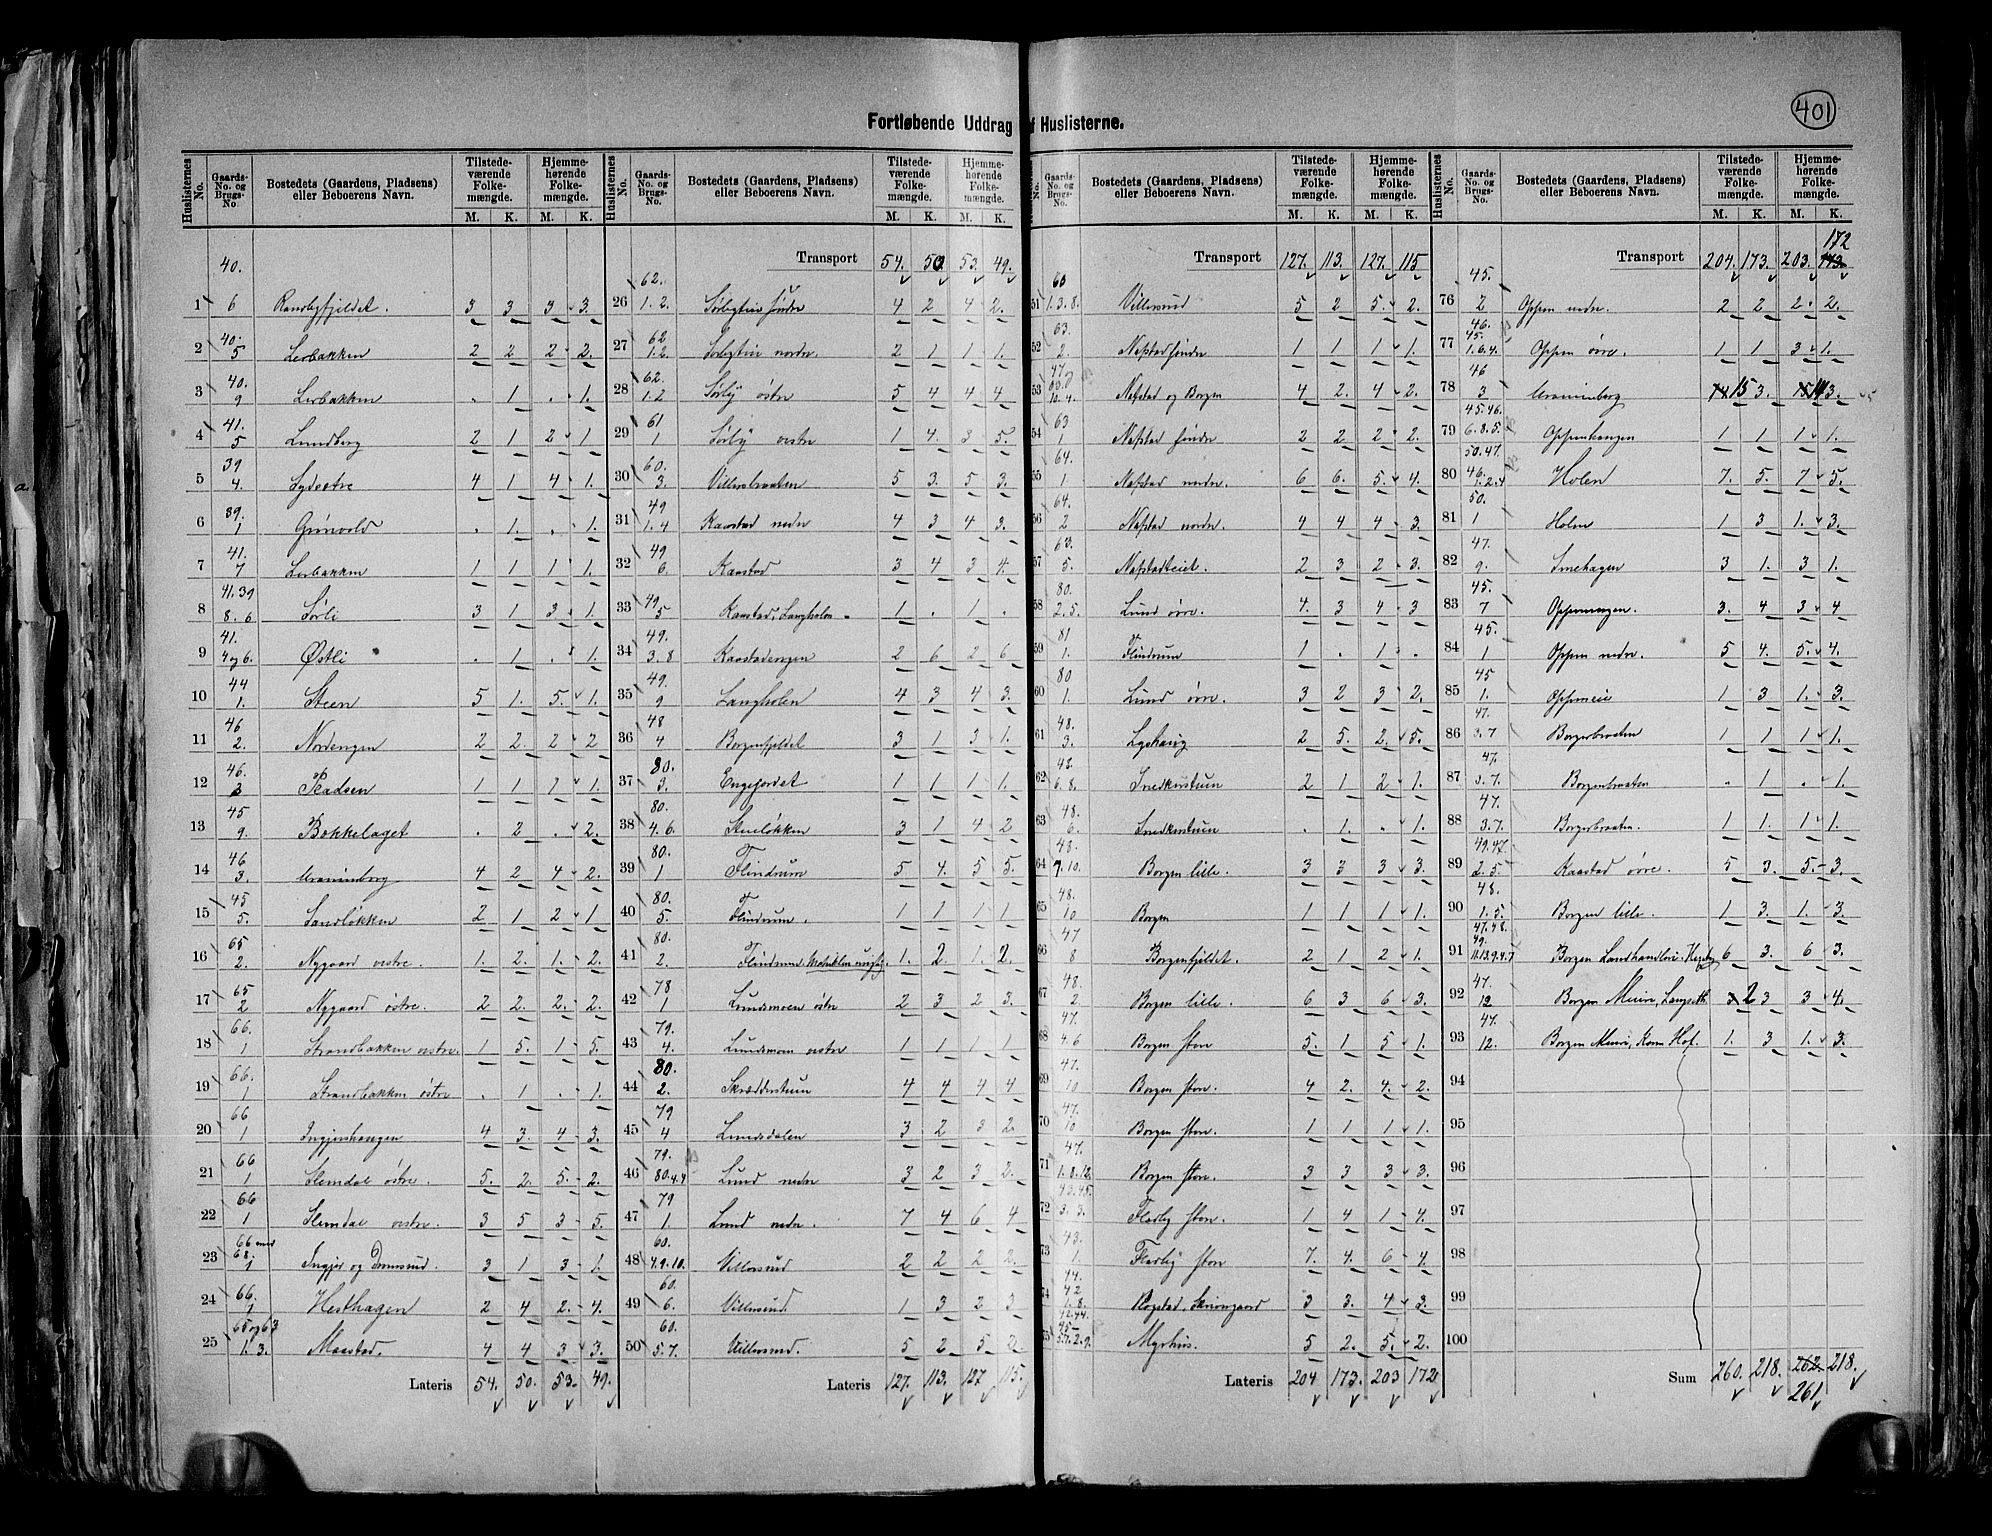 401
Fortløbende Uddrag af Huslisterne.
Huslisternes No. Gaards-No. og Brugs-No. Bostedets (Gaardens, Pladsens) eller Beboerens Navn. Tilstedeværende Folkemængde. M. K. Hjemmehørende Folkemængde. M. K.
40.
1 6 Ransbyfjeldet. 3 3 3 3.
40.
2 5 Lerbakken 2 2 2 2.
40.
3 9 Lerbakken . 1 . 1.
41.
4 5 Lundberg 2 1 2 1
39
5 4. 4 1 4 1.
39.
6 1 Grønvold . 1. . 1.
41.
7 7 Lerbakken 1 1 1 1.
41. 39
8 8. 6 Sørli 3 1 3 1.
41.
9 4 og 6. Østli . 1 . 1.
44
10 1. Steen 5 1. 5. 1.
46
11 2. Nordengen 2 2. 2 2
46.
12 3 Pladsen 1 1 1 1.
45
13 9. Bakkelaget . 2 . 2.
46
14 3. Kraminborg 4 2 4 2.
45
15 5. Sandløkken 2 1 2 1
65
16 2. Nygaard vestre. 1. 2. 1. 2.
65
17 2 Nygaard østre. 2 2. 2. 2.
66.
18 1 Strandbakken vestre. 1 5. 1 5.
66.
19 1 Strandbakken østre . 1 . 1.
66
20 1 Ingjershaugen 4 3. 4 3.
66
21 1 Slemdal østre. 5. 2. 5. 2.
66
22 1 Slemdal vestre. 3 5 3 5.
66 med 68.
23 1 Ingjer og 3 1 3 1.
66.
24 1 Hesthagen 2 4 2. 4.
65 og 63
25 1. 3. Maastad. 4 4 3 3.
Lateris 54. 50. 53. 49.
Huslisternes No. Gaards-No. og Brugs-No. Bostedets (Gaardens, Pladsens) eller Beboerens Navn. Tilstedeværende Folkemængde. M. K. Hjemmehørende Folkemængde. M. K.
Transport 54. 50. 53. 49.
62.
26 1. 2. søndre 4 2 4 2.
62
27 1. 2. nordre. 2 1 1 1.
62.
28 1. 2 Sørby østre 5 4 4 4
61
29 1 Sørby vestre 1 4. 3 5.
60.
30 3. Villersbraaten 5 3. 5 3.
49
31 1. 4 Kaastad nedre 4 3 4 3.
49
32 6. Kaastad 3 4 3 4.
49.
33 5 Kaastad, Langholen. 1 . 1 .
49.
34 3. 8 Kaastadengen 2 6 2 6
49.
35 9 Langholen 4 3 4 3.
48
36 4 Borgenfjeldet 3 1 3 1.
80.
37 3. Engejordet 1 1 1 1.
80.
38 4. 6. Stenløkken 3 1 4 2
80.
39 1 Flindrum 5 4. 5 5.
80.
40 5. Flindrum. 1 1 1 1
80.
41 2. Flindrum 1. 2. 1. 2.
78
42 1 Lundsmoen østre 2 3 2 3.
79.
43 4. Lundsmoen vestre 1 1 1 1
80.
44 2. Skrædderstuen 4 4 4 4
79
45 4 Lundsdalen 3 2 3 2.
79.
46 80. 4. 4 Lund nedre 3 2 3 2
79
47 1. Lund nedre. 7 4 6 4
60.
48 4. 9. 10. Villersund 2 2 2 2.
60.
49 6. Villersund. 1 3 2 3
60.
50 5. 7. Villersund. 5 2 5 2.
Lateris 127. 113. 127. 115.
No. Gaards-No. og Brugs-No. Bostedets (Gaardens, Pladsens) eller Beboerens Navn. Tilstedeværende Folkemængde. M. K. Hjemmehørende Folkemængde. M. K.
Transport 127. 113. 127. 115
60
51 1. 3. 8. Villersund 5 2 5. 2.
63.
52 2. Nafstad søndre 1 1 1 1.
47
53 10. 4. Nafstad og Borgen 4 2 4 2.
63
54 1 Nafstad søndre 2 2 2 2.
64.
55 1 Nafstad nedre. 6 6. 5. 4.
64.
56 2 Nafstad nordre. 4 4 4 3.
63.
57 5. Nafstadteiet. 2 3 2 3.
80.
58 2. 5. Lund øvre. 4. 3 4 3
81
59 1. Flindrum 1 . 1 .
80
60 1. Lund øvre. 3 2 3 2.
48.
61 3. Lyshaug 2 5. 2. 5.
48.
62 6. 8. Snedkerstuen 2 1 2 1.
48.
63 6. Snedkerstuen . 1. . 1.
48.
64 7. 10. Borgen lille. 3 3 3 3.
48.
65 10 Borgen 1 1 1 1.
47
66 8 Borgenfjeldet. 2 1 2 1.
48.
67 2. Borgen lille. 6 3 6 3.
47.
68 4. 6 Borgen store 5. 1 5 1.
47.
69 10 Borgen store. 4 2. 4. 2.
47.
70 10 Borgen store. 1 1 1 1.
47.
71 1. 8. 12. Borgen store. 3 3 3 3.
43. 45.
72 3. 3. Flasby store. 1 4 1 4.
43.
73 1. Flasby store 7. 4. 6 4.
44.
42
74 1. 8. Rogstad, Skrivergaard 3 3. 4 3.
42. 44.
45-
75 5. 7. 2. 9. Myrhus. 5 2. 5. 2.
Lateris 204 173. 203 172
Huslisternes No. Gaards-No. og Brugs-No. Bostedets (Gaardens, Pladsens) eller Beboerens Navn. Tilstedeværende Folkemængde. M. K. Hjemmehørende Folkemængde. M. K.
172
Transport 204. 173. 203. 173.
45.
76 2 Oppen nedre. 2 2 2 2.
46.
45.
77 1. 6. 4. Oppen øvre. 1 1 3 1.
46
78 3 Kraminborg 14 15 3. 15 14 3.
45. 46.
79 6. 8. 5. Oppenhaugen 1 1 1 1.
50. 47.
46.
80 1. 2. 4 Holen 7. 5. 7 5.
50.
81 1 Holen 1 3 1. 3.
47.
82 9. Smehagen 3 1. 3 1.
45.
83 7 Oppenengen. 3. 4 3 4
45.
84 1 Oppen nedre. 5 4. 5. 4.
45
85 1. Oppeneie 1 3 1. 3.
47.
86 3. 7 Borgerbraaten 1 1 1 1.
47.
87 3. 7. Borgenbraaten . 1 . 1.
47.
88 3. 7. Borgerbraaten. 1 1. 1 1.
49. 47.
89 2. 5. Kaastad øvre. 5 3. 5 3.
48.
90 1. 5. Borgen lille. 1 3. 1. 3.
47. 48.
49.
91 11. 13. 9. 4. 7 Borgen Landhandleri. 6 3. 6 3.
47.
92 12 Borgen Meieri, Langseth 3 2 3 3 4.
47.
93 12. Borgen Meieri, Hof. 1. 3 1. 3.
94
95
96
97
98
99
100
Sum 260. 218. 262. 218.
261.